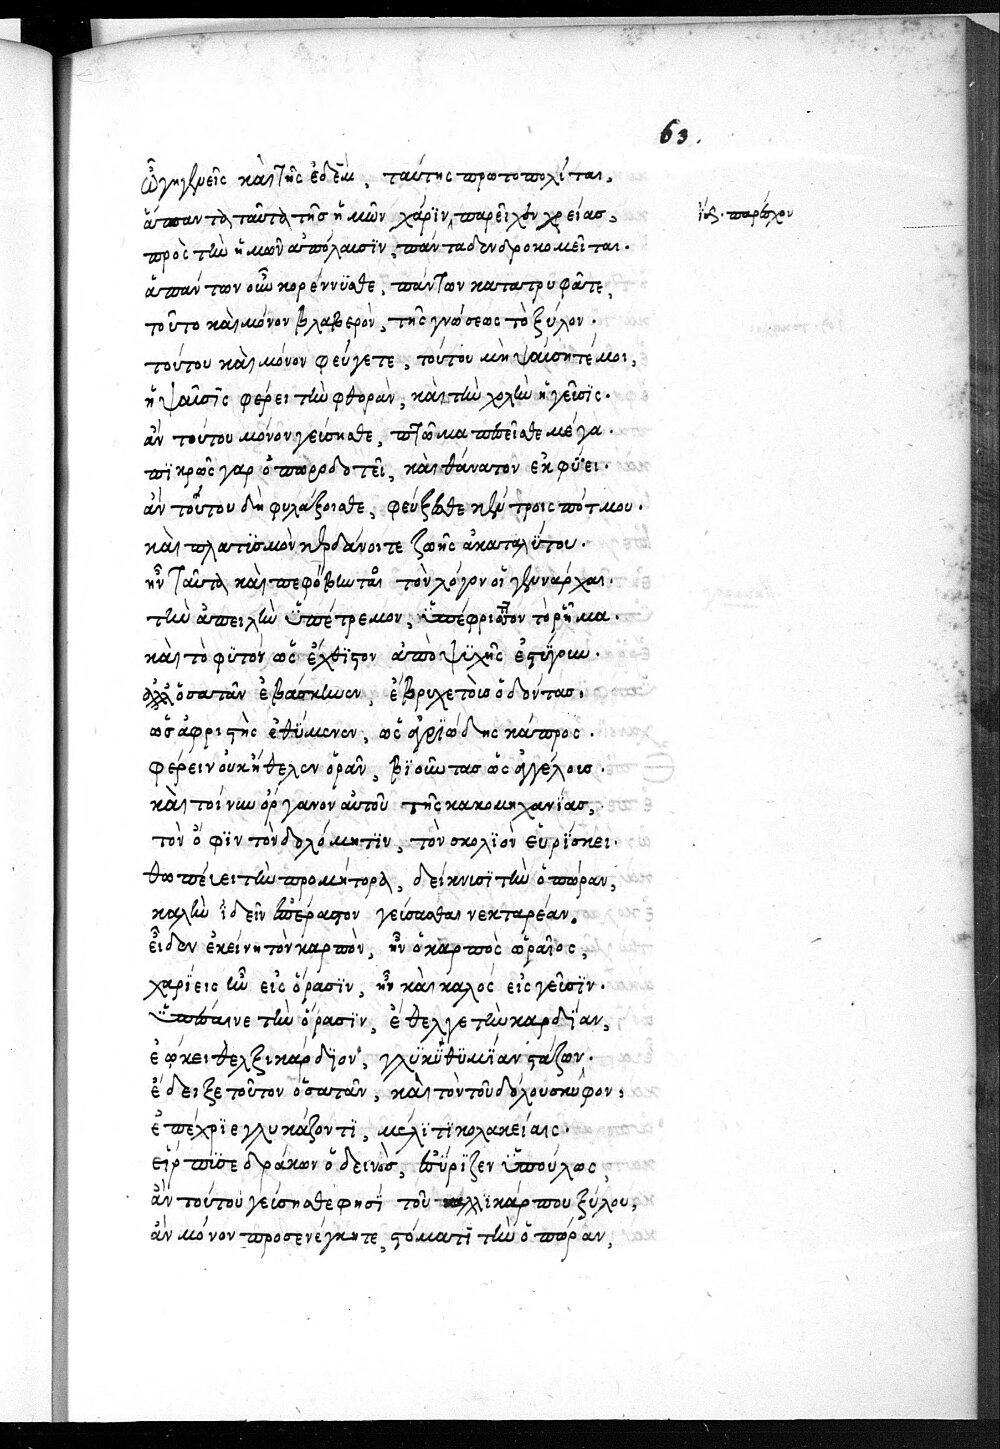 63.
ὦ γηγενεῖς καὶ τῆς ἐδὲμ, ταύτης πρωτοπολίται,
ἅπαντα ταῦτα τῆς ἡμῶν χάριν παρεῖχον χρείας,
ἴσ. παρέσχον
πρὸς τὴν ἡμῶν ἀπόλαυσιν, πάντα δενδροκομεῖται.
ἁπάντων οὖν κορέννυσθε, πάντων κατατρυφᾶτε,
τοῦτο καὶ μόνον βλαβερὸν, τῆς γνώσεως τὸ ξύλον.
τούτου καὶ μόνον φεύγετε, τούτου μὴ ψαύσητέ μοι,
ἡ ψαῦσις φέρει τὴν φθορὰν, καὶ τὴν χολὴν ἡ γεῦσις.
ἂν τούτου μόνον γεύσησθε, πτῶμα πεσεῖσθε μέγα.
πικρῶς γὰρ ὀπωροδοτεῖ, καὶ θάνατον ἐκφύει.
ἂν τοῦτου δὴ φυλάξοισθε, φεύξεσθε κέντροις πότμου.
καὶ πλατισμὸν κερδάνοιτε ζωῆς ἀκαταλύτου.
ἦν ταῦτα καὶ πεφόβηνται τὸν λόγον οἱ γενάρχαι.
τὴν ἀπειλὴν ὑπέτρεμον, ὑπέφριττον τὸ ῥῆμα.
καὶ τὸ φυτὸν ὡς ἔχθιστον ἀπὸ ψυχῆς ἐστύγουν.
ἀλλ' ὁ σατᾶν ἐβάσκηνεν, ἔβρυχε τοὺς ὀδόντας,
ὡς ἀφριστὴς ἐθύμαινεν, ὡς ἀγριώδης κάπρος.
φέρειν οὐκ ἤθελεν ὁρᾶν, βιοῦντας ὡς ἀγγέλους.
καὶ τοίνυν ὄργανον αὐτοῦ τῆς κακομηχανίας,
τὸν ὄφιν τὸν δολόμητιν, τὸν σκολιὸν εὑρίσκει.
θωπεύει τὴν προμήτορα, δείκνυσι τὴν ὀπώραν,
καλὴν ἰδεῖν ἐπέραστον γεύσασθαι νεκταρέαν.
εἶδεν ἐκείνη τὸν καρπὸν, ἦν ὁ καρπὸς ὡραῖος,
χαρίεις ἦν εἰς ὅρασιν, ἦν καὶ καλὸς εἰς γεῦσιν.
ὑπέσαινε τὴν ὅρασιν, ἔθελγε τὴν καρδίαν,
ἐῴκει θελξικάρδιον, γλυκυθυμίαν στάζων.
ἔδειξε τοῦτον ὁ σατᾶν, καὶ τὸν τοῦ δόλου σκύφον,
ἐπέχριε γλυκάζοντι, μέλιτι κολακείας.
εἷρπυσε δράκων ὁ δεινὸς, ἐσύριζεν ὑπούλως,
ἂν τούτου γεύσησθε φησὶ τοῦ καλλικάρπου ξύλου,
ἂν μόνον προσενέγκητε, στόματι τὴν ὀπώραν,